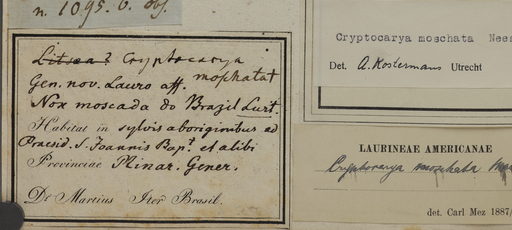 n. 1095. b. Obs.
Litsea? Cryptocarya
moschata
Gen. nov. Lauro aff.
Nox moscada do Brazil Lusit.
Habitat in sylvis aborigionibus ad
Praesid. S. Joannis Bapt. et alibi
Provinciae Minar. Gener.
Dr Martius Iter Brasil.
Cryptocarya moschata Nees
Det. A. Kostermans Utrecht
LAURINEAE AMERICANAE
Cryptocarya moschata
det. Carl Mez 1887/